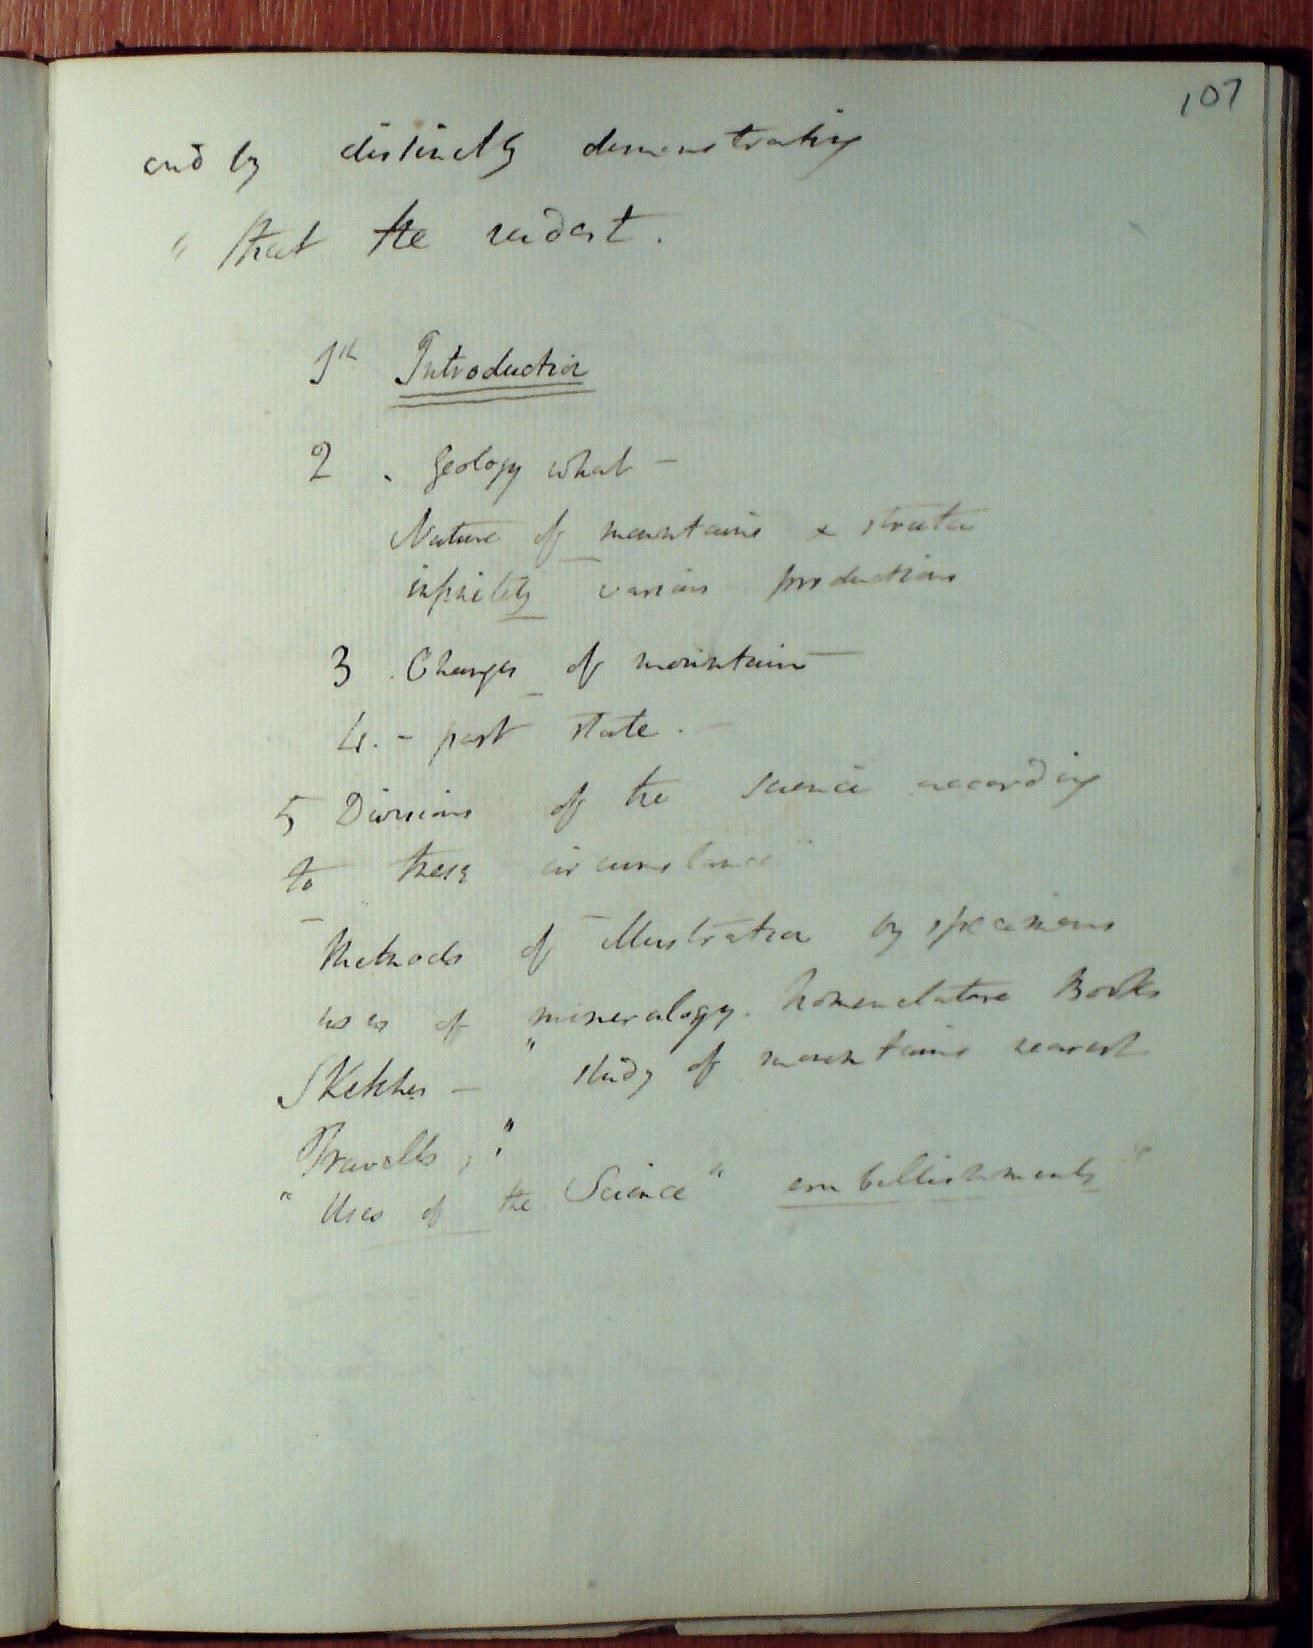 107
and by distinctly demonstrating
" that the rudest.
1st Introduction
2 . Geology what -
Nature of mountains & strata
infinitely various productions
3 . Changes of mountains -
4. - past state. -
5 Divisions of the science according
to these circumstances
- Methods of illustration by specimens
uses of mineralogy. Nomenclature Books
Sketches - " study of mountains nearest
Travells , "
" Uses of the Science " embellishments "